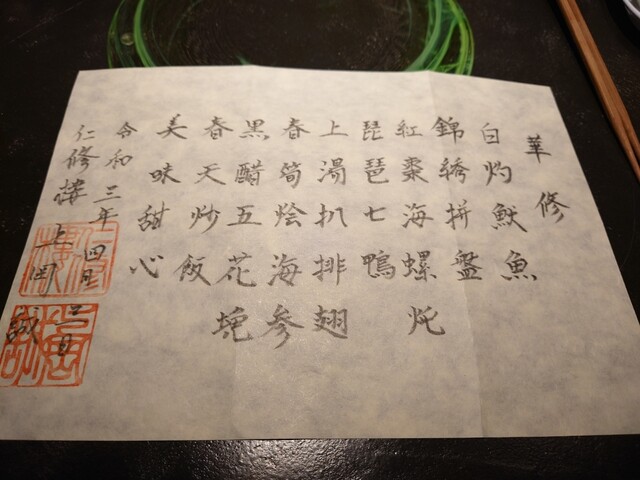 華修
白灼魷魚
錦綉拼盤
紅棗海螺炖
琵琶七鴨
上湯扒排翅
春筍烩海参
黒醋五花塊
春天炒飯
美味甜心
令和三年四月二日
仁修樓 上岡誠